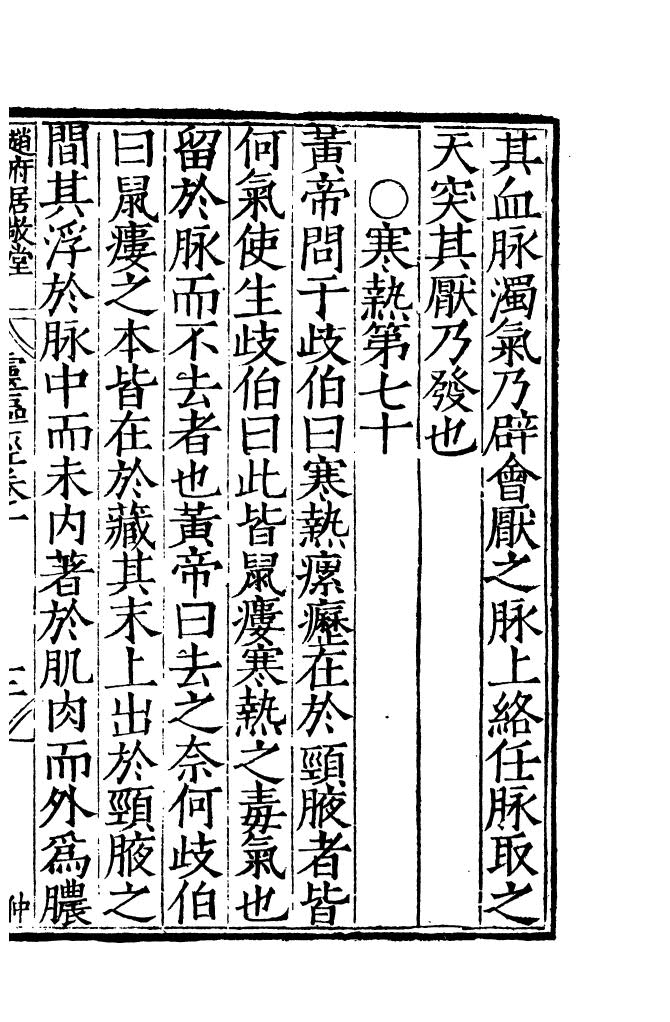 其血脉濁氣乃辟會厭之脉上絡任脉取之
天突其厭乃發也
○寒熱第七十
黃帝問于歧伯曰寒熱瘰癧在於頸腋者皆
何氣使生歧伯曰此皆鼠瘻寒熱之毒氣也
留於脉而不去者也黃帝曰去之奈何歧伯
曰鼠瘻之本皆在於藏其末上出於頸腋之
間其浮於脉中而未内著於肌肉而外爲膿
趙府居敬堂
仲